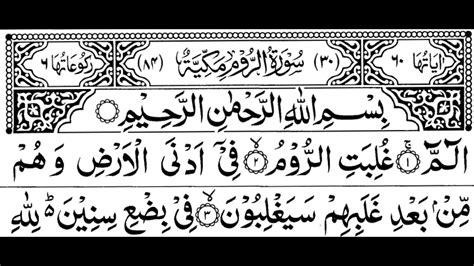 اٰیَاتُهَا ٦٠ (٣٠) سُوْرَةُ الرُّوْمِ مَكِّیَّةٌ (٨٤) رُكُوْعَاتُهَا ٦
بِسْمِ اللّٰهِ الرَّحْمٰنِ الرَّحِیْمِ
الٓمّٓ ۚ﴿١﴾ غُلِبَتِ الرُّوْمُ ۙ﴿٢﴾ فِیْۤ اَدْنَی الْاَرْضِ وَ هُمْ
مِّنْۢ بَعْدِ غَلَبِهِمْ سَیَغْلِبُوْنَ ۙ﴿٣﴾ فِیْ بِضْعِ سِنِیْنَ ؕ۬ لِلّٰهِ